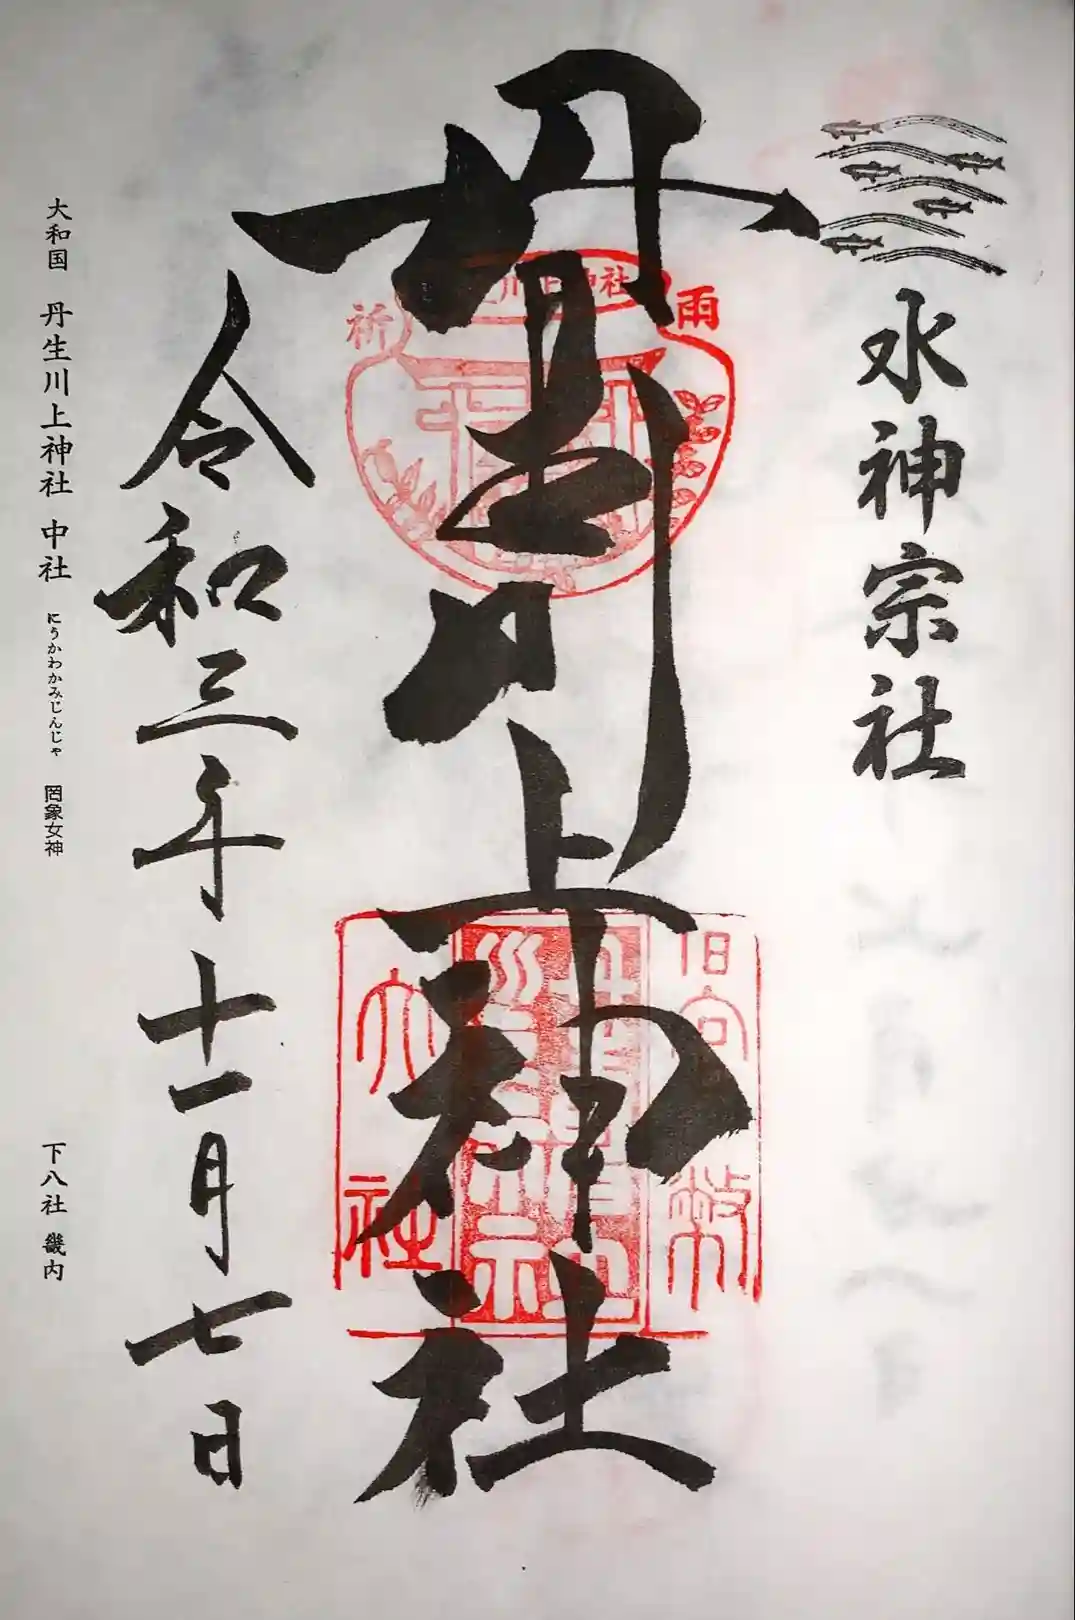 水神宗社
丹生川上神社
雨
祈
川上神社
官幣
大社
令和三年十一月七日
大和国 丹生川上神社 中社 にうかわかみじんじゃ 罔象女神 下八社 畿内